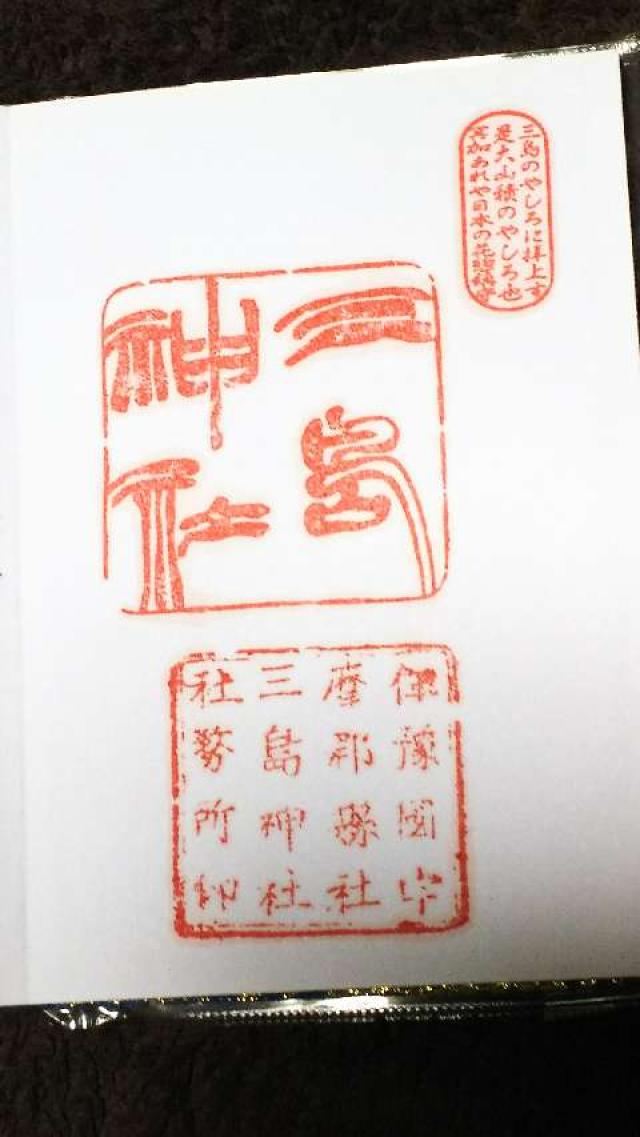 三島のやしろに拝上す
是大山積のやしろ也
三島
神社
伊豫國宇
摩郡縣社
三島神社
社務所印